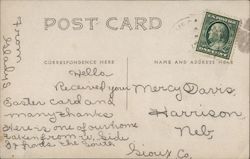 POST CARD
CORRESPONDENCE HERE
NAME AND ADDRESS HERE
From
Gladys
Hello
Received your
Easter card and
many thanks
Here is one of our home
taken from the side
It fronts the South
Mercy Davis,
Harrison
Neb,
Sioux Co.